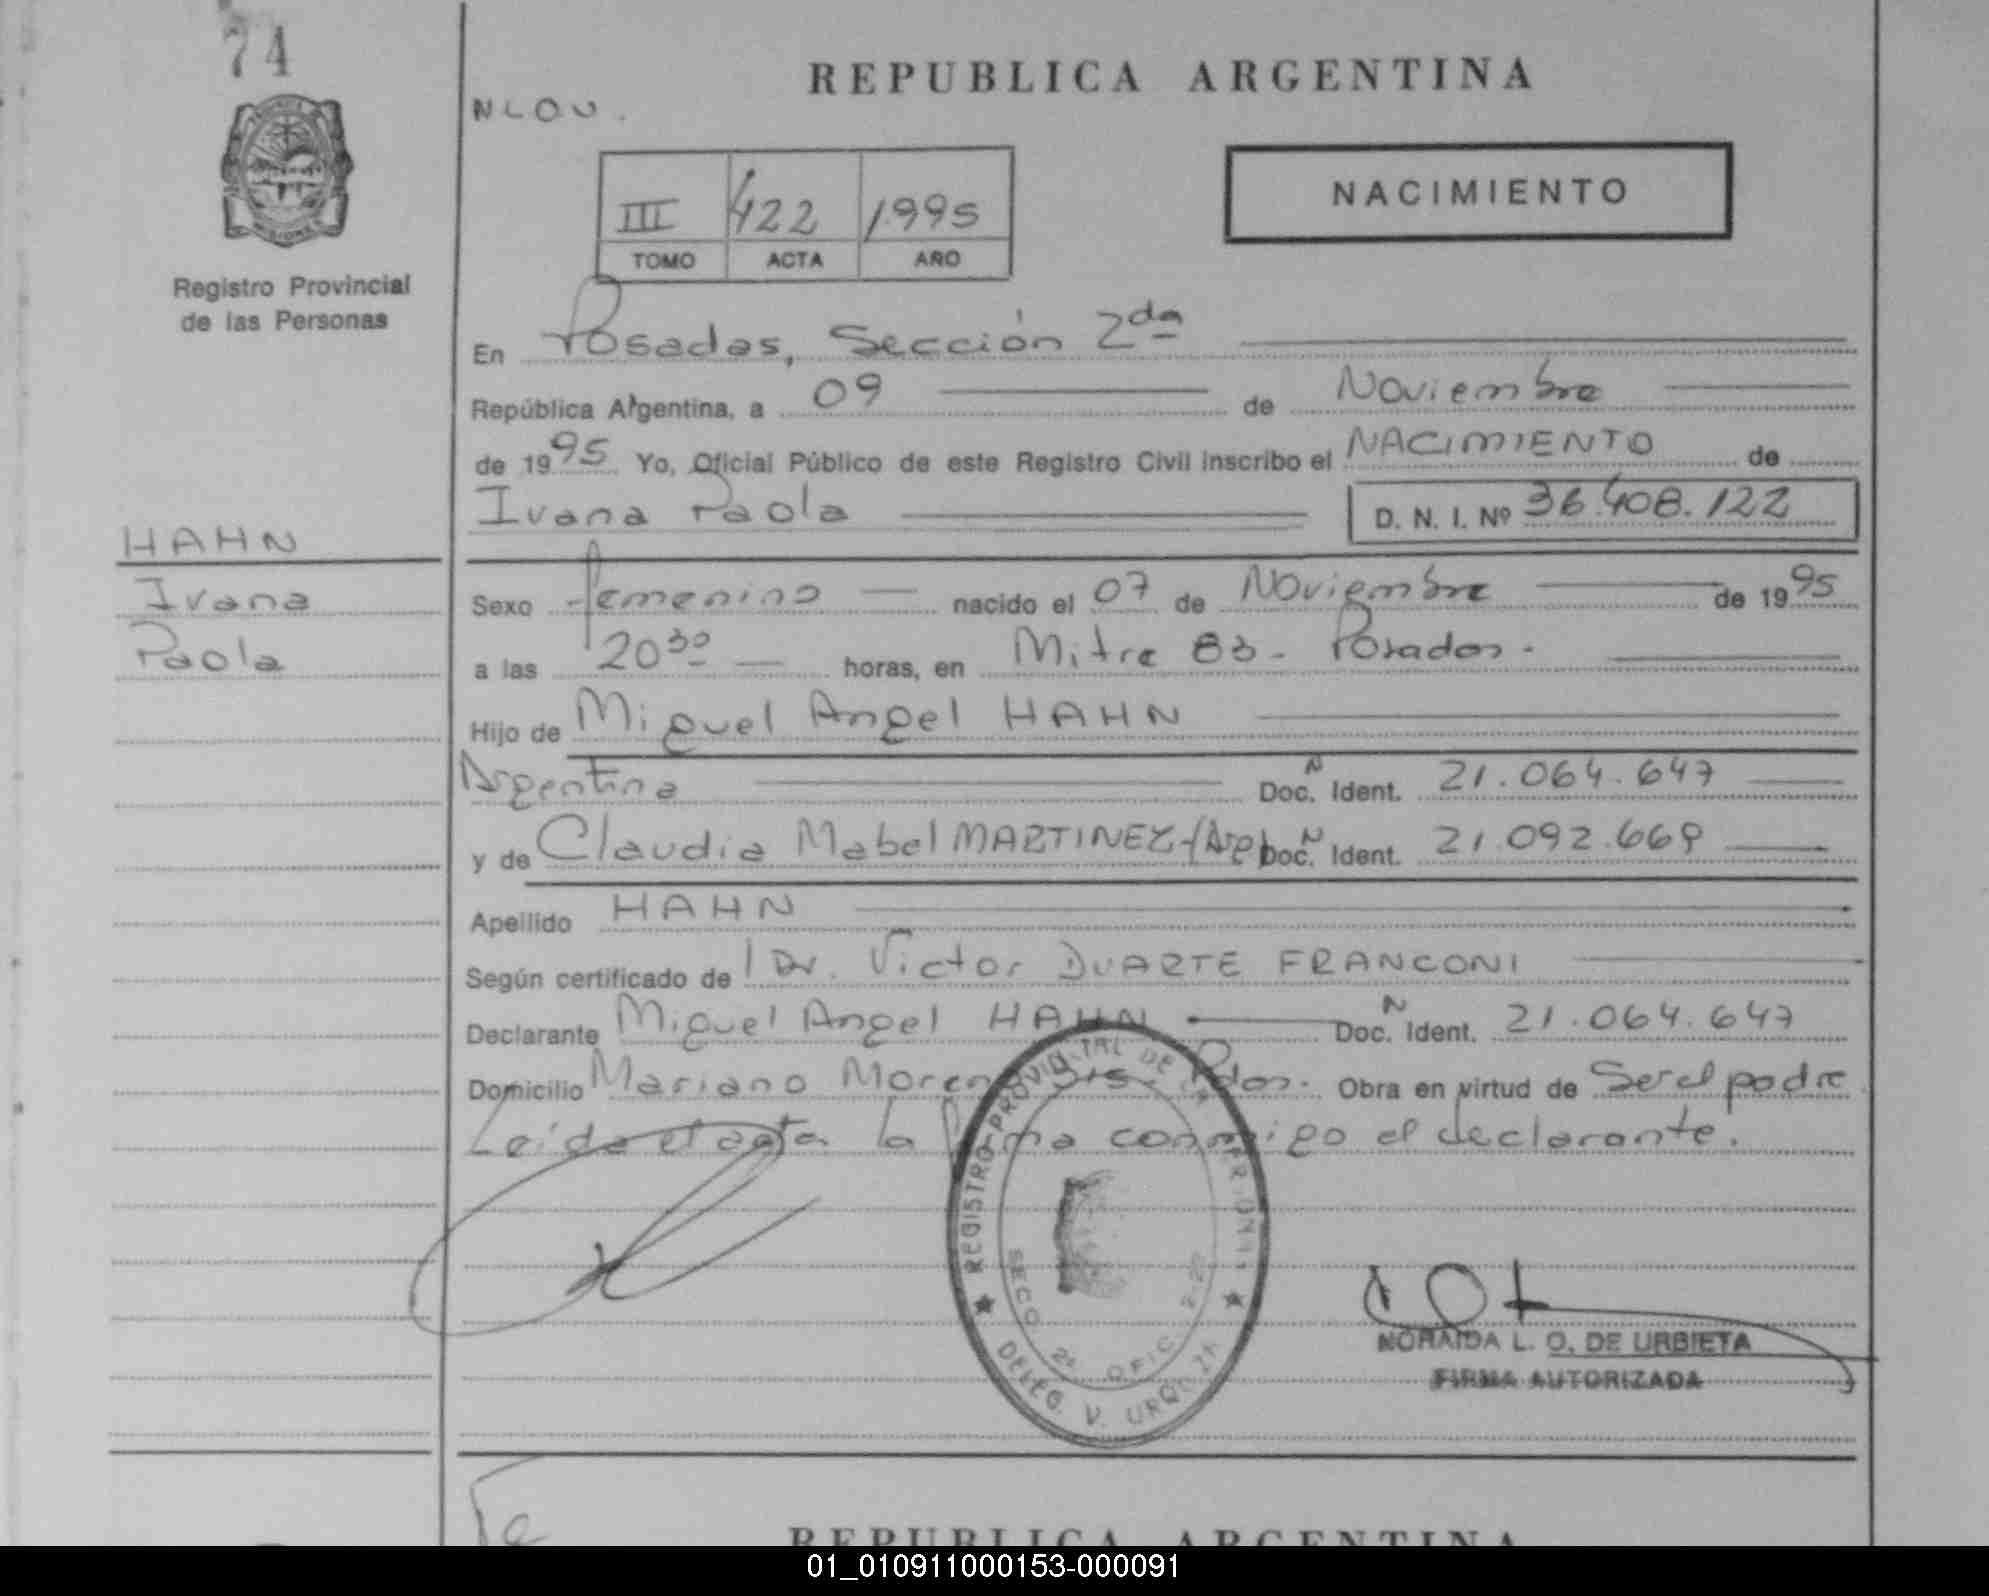 74
REPUBLICA ARGENTINA
NLOU.
NACIMIENTO
III 422 1995
TOMO ACTA AÑO
Registro Provincial
de las Personas
En Posadas, Sección 2da
República Argentina, a 09 de Noviembre
de 1995 Yo, Oficial Público de este Registro Civil inscribo el NACIMIENTO de
Ivana Paola D. N. I. Nº 36.408.122
HAHN
Ivana
Paola
Sexo femenino nacido el 07 de Noviembre de 1995
a las 20 30 horas, en Mitre 83 - Posadas -
Hijo de Miguel Angel HAHN
Argentina Doc. N Ident. 21.064.647
y de Claudia Mabel MARTINEZ-(Arg) Doc. N Ident. 21.092.669
Apellido HAHN
Según certificado de Dr. Victor DUARTE FRANCONI
Declarante Miguel Angel HAHN Doc. N Ident. 21.064.647
Domicilio Mariano Moreno Pdas. Obra en virtud de Ser el padre.
Leída el acta la firma conmigo el declarante.
REGISTRO PROVINCIAL DE LA
SECC 2ª OFIC
DELEG. V. URQUIZA
NORAIDA L. O. DE URBIETA
FIRMA AUTORIZADA
REPUBLICA ARGENTINA
01_010911000153-000091